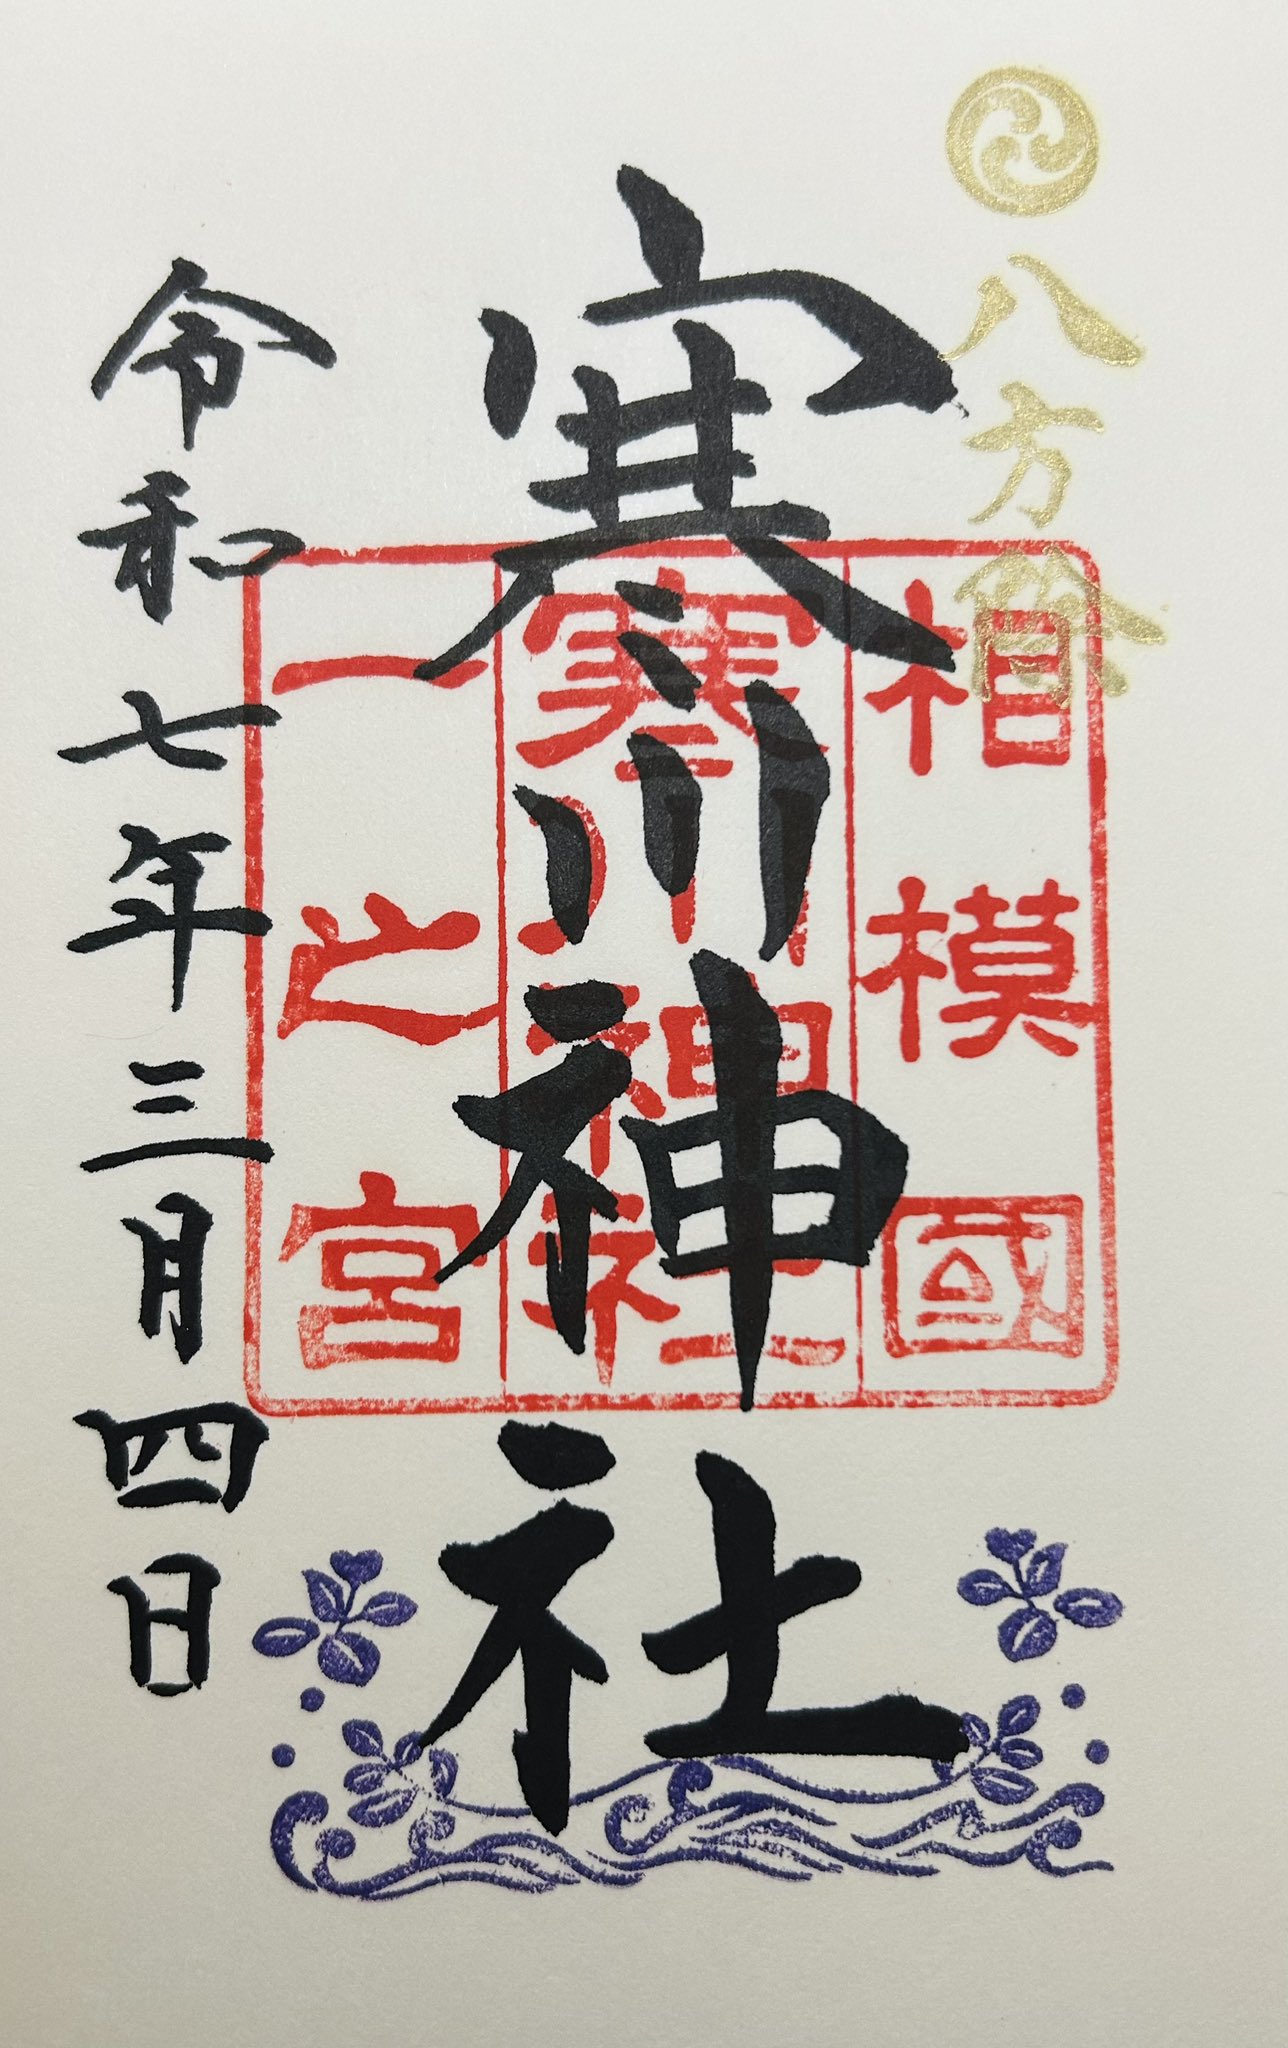 八方除
寒川神社
相模國
寒川神社
一之宮
令和七年三月四日